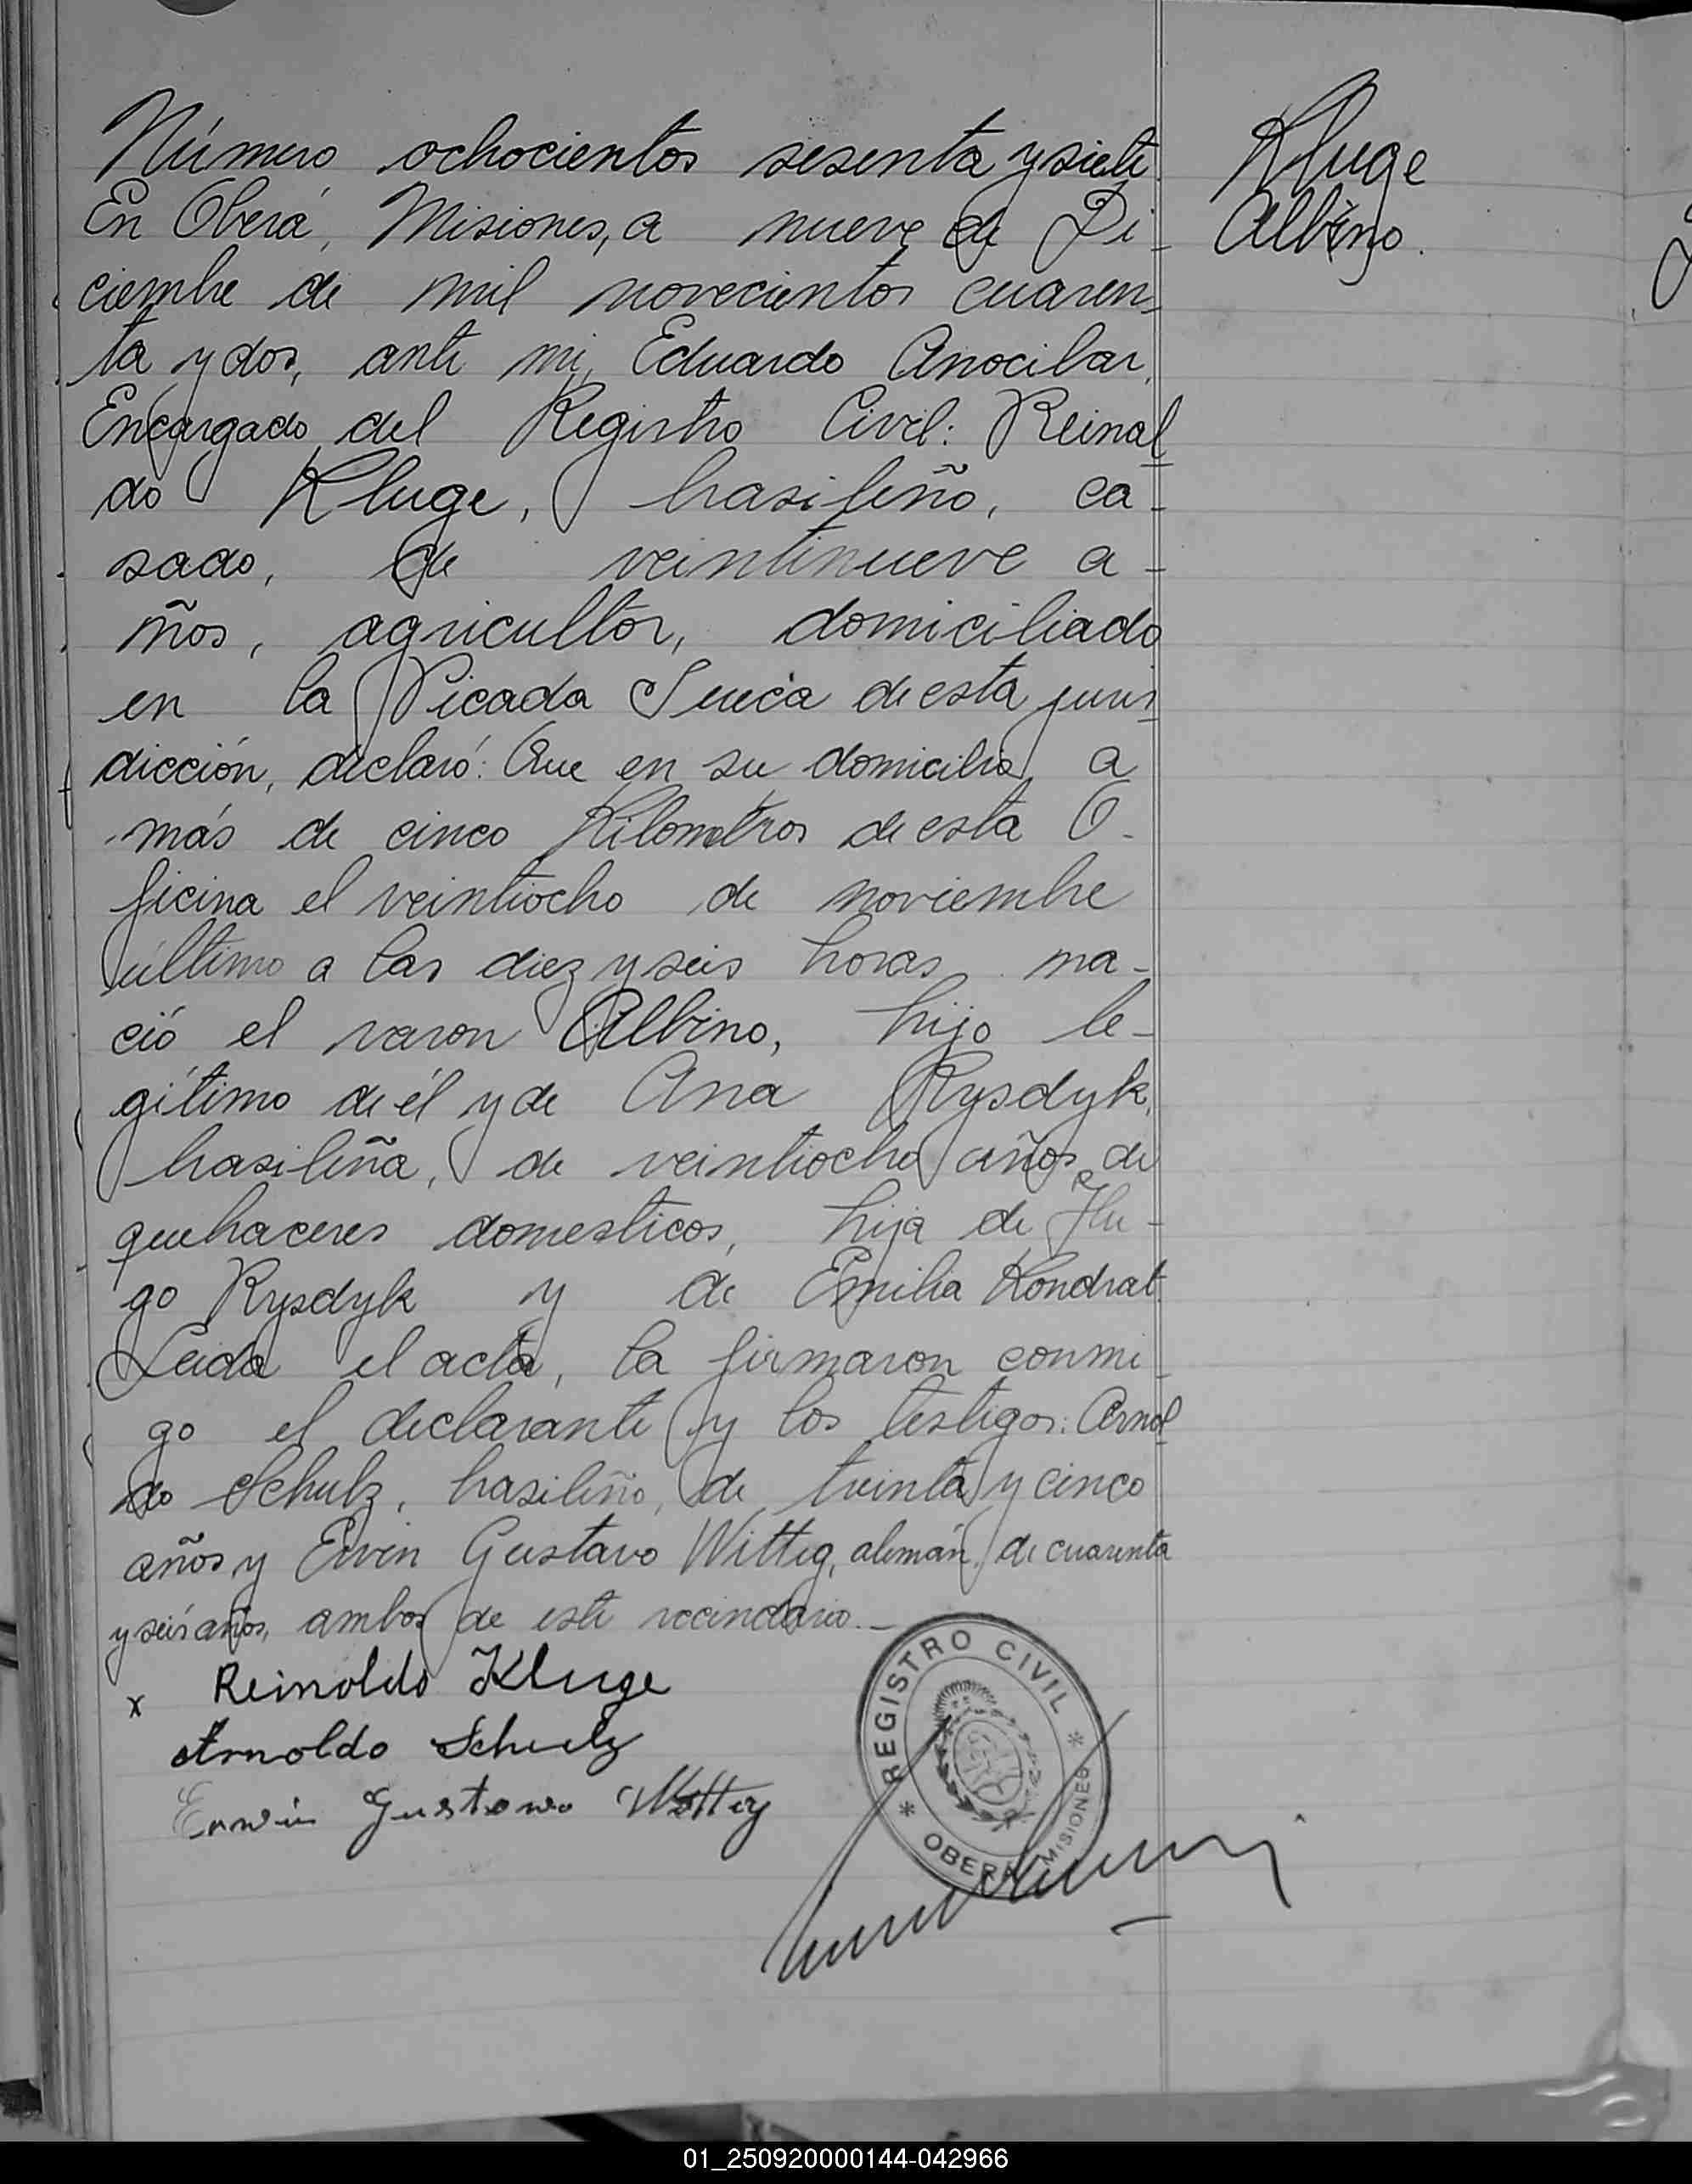 Número ochocientos sesenta y siete.
En Oberá, Misiones, a nueve de Di-
ciembre de mil novecientos cuaren-
ta y dos, ante mi, Eduardo Anocibar,
Encargado del Registro Civil: Reinal
do Kluge, brasileño, ca-
sado, de veintinueve a-
ños, agricultor, domiciliado
en la Picada Sueca de esta juris
dicción, declaró: Que en su domicilio, a
más de cinco Kilometros de esta O-
ficina el veintiocho de noviembre
último a las diez y seis horas, na-
ció el varon Albino, hijo le-
gítimo de él y de Ana Rysdyk,
brasileña, de veintiocho años, de
quehaceres domesticos, hija de Hu-
go Rysdyk y de Emilia Kondrat.
Leida el acta, la firmaron conmi-
go el declarante y los testigos: Arnol
do Schulz, brasileño, de treinta y cinco
años y Ervin Gustavo Wittig, alemán, de cuarenta
y seis años, ambos de este vecindario.-
x Reinoldo Kluge
Arnoldo Schulz
Erwin Gustavo Wittig
Kluge
Albino.
REGISTRO CIVIL
* OBERÁ MISIONES *
01_250920000144-042966